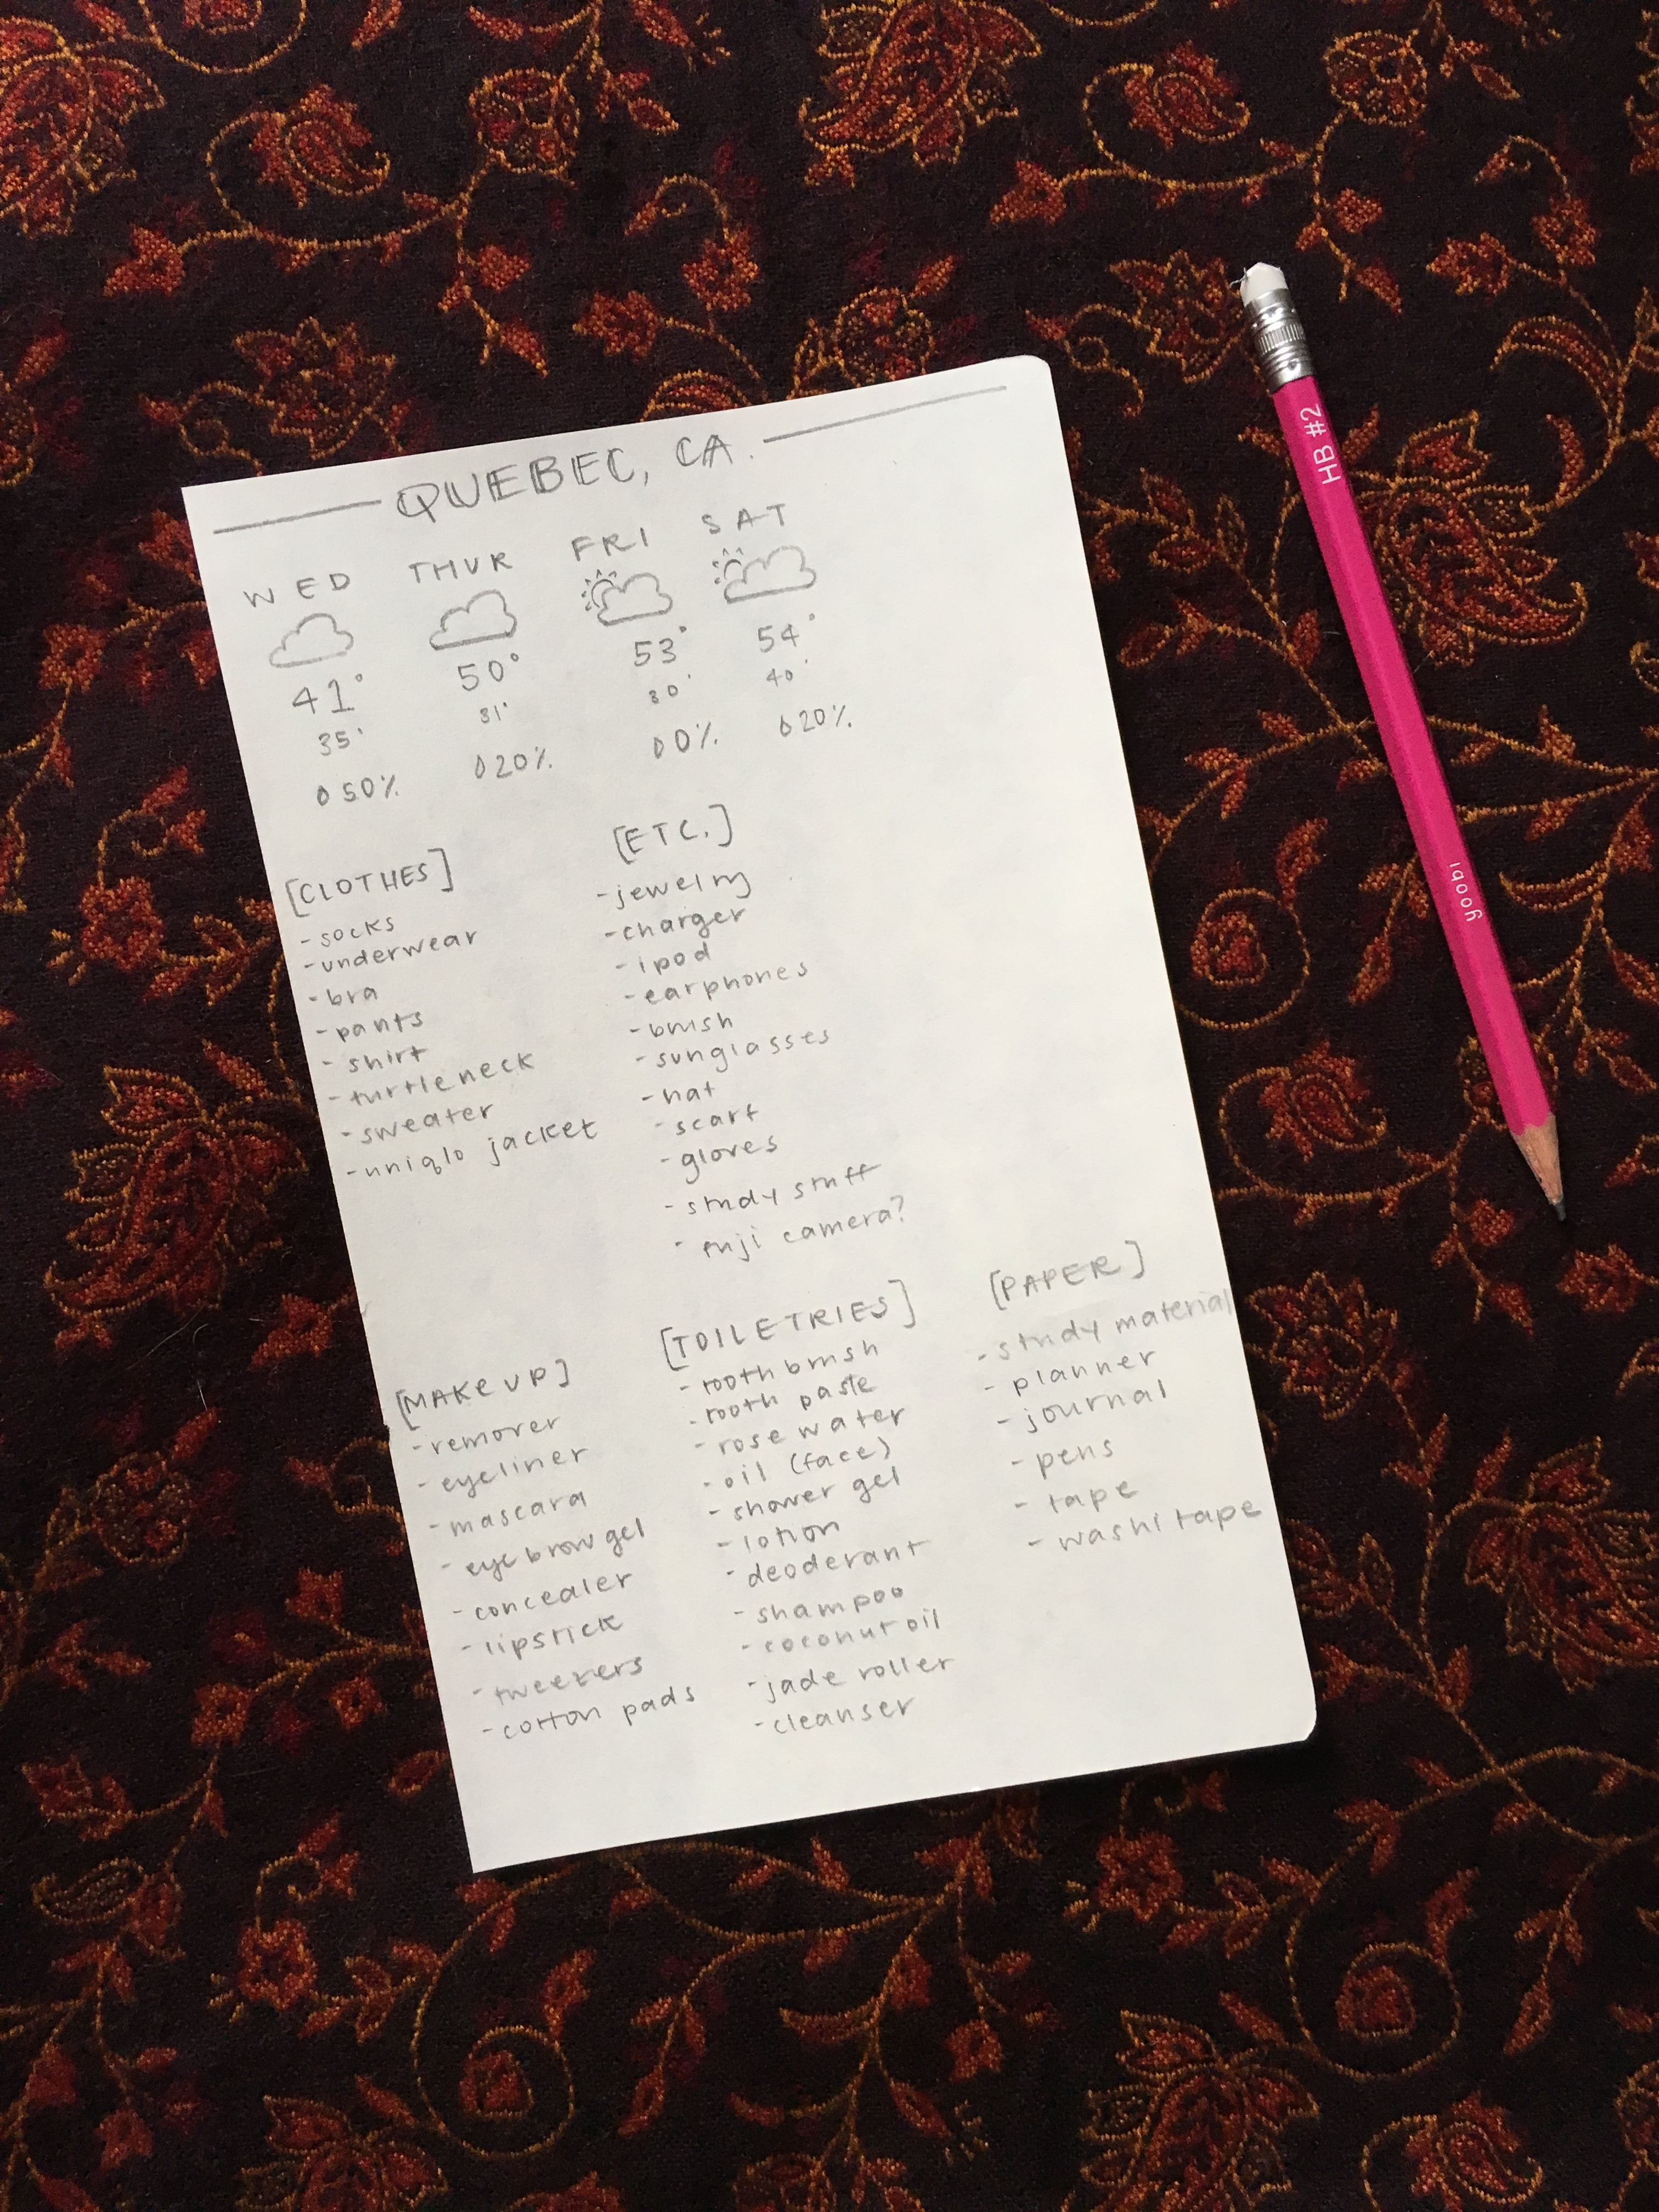 QUEBEC, CA.
WED THUR FRI SAT
41° 50° 53° 54°
35° 31° 30° 40°
50% 20% 0% 20%
[CLOTHES]
- socks
- underwear
- bra
- pants
- shirt
- turtleneck
- sweater
- uniqlo jacket
[ETC.]
- jewelry
- charger
- ipod
- earphones
- brush
- sunglasses
- hat
- scarf
- gloves
- study stuff
- fuji camera?
[MAKE UP]
- remover
- eyeliner
- mascara
- eye brow gel
- concealer
- lipstick
- tweezers
- cotton pads
[TOILETRIES]
- tooth brush
- tooth paste
- rose water
- oil (face)
- shower gel
- lotion
- deoderant
- shampoo
- coconut oil
- jade roller
- cleanser
[PAPER]
- study material
- planner
- journal
- pens
- tape
- washi tape
HB #2
yoobi